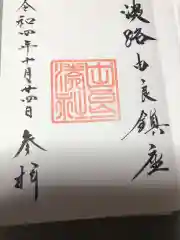 淡路由良鎮座
由良湊神社
令和四年十月廿四日
参拝